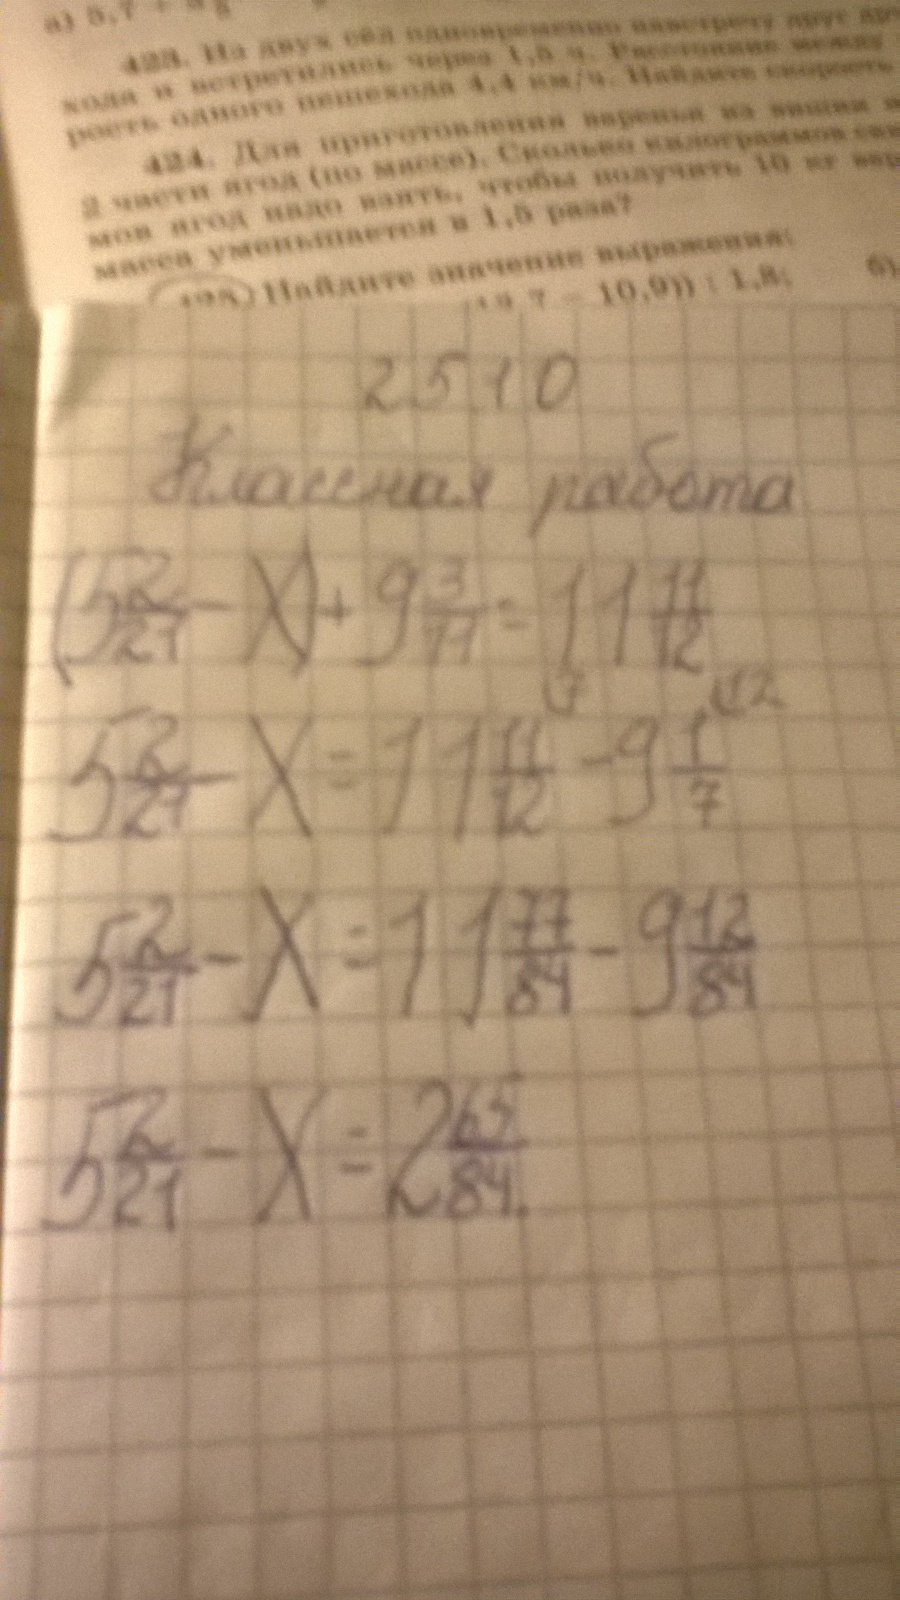 а) 5,7 +
423. Из двух сёл одновременно навстречу друг
хода и встретились через 1,5 ч. Расстояние между
рость одного пешехода 4,4 км/ч. Найдите скорость
424. Для приготовления варенья из вишни
2 части ягод (по массе). Сколько килограммов
мов ягод надо взять, чтобы получить 10 кг
масса уменьшается в 1,5 раза?
425. Найдите значение выражения:
7 − 10,9)) : 1,8; б)
25 10
Классная работа
(5 2/21 − X) + 9 3/21 = 11 11/12
5 2/21 − X = 11 11/12 − 9 1/7
5 2/21 − X = 11 77/84 − 9 12/84
5 2/21 − X = 2 65/84.